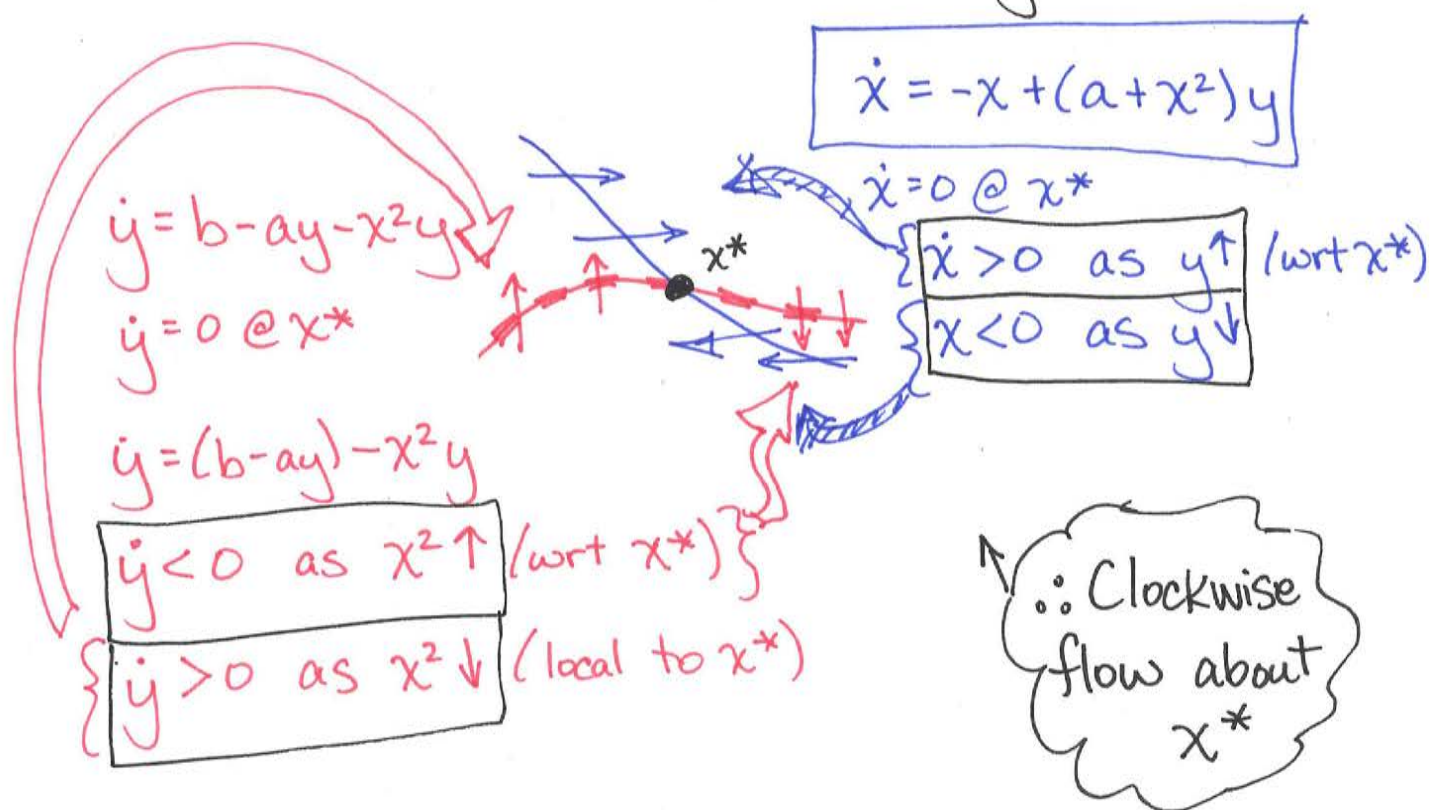 ẋ = -x + (a + x²) y
ẋ = 0 @ x*
ẋ > 0 as y↑ (wrt x*)
x < 0 as y↓
x*
ẏ = b - ay - x²y
ẏ = 0 @ x*
ẏ = (b - ay) - x²y
ẏ < 0 as x² ↑ (wrt x*)
ẏ > 0 as x² ↓ (local to x*)
∴ Clockwise
flow about
x*